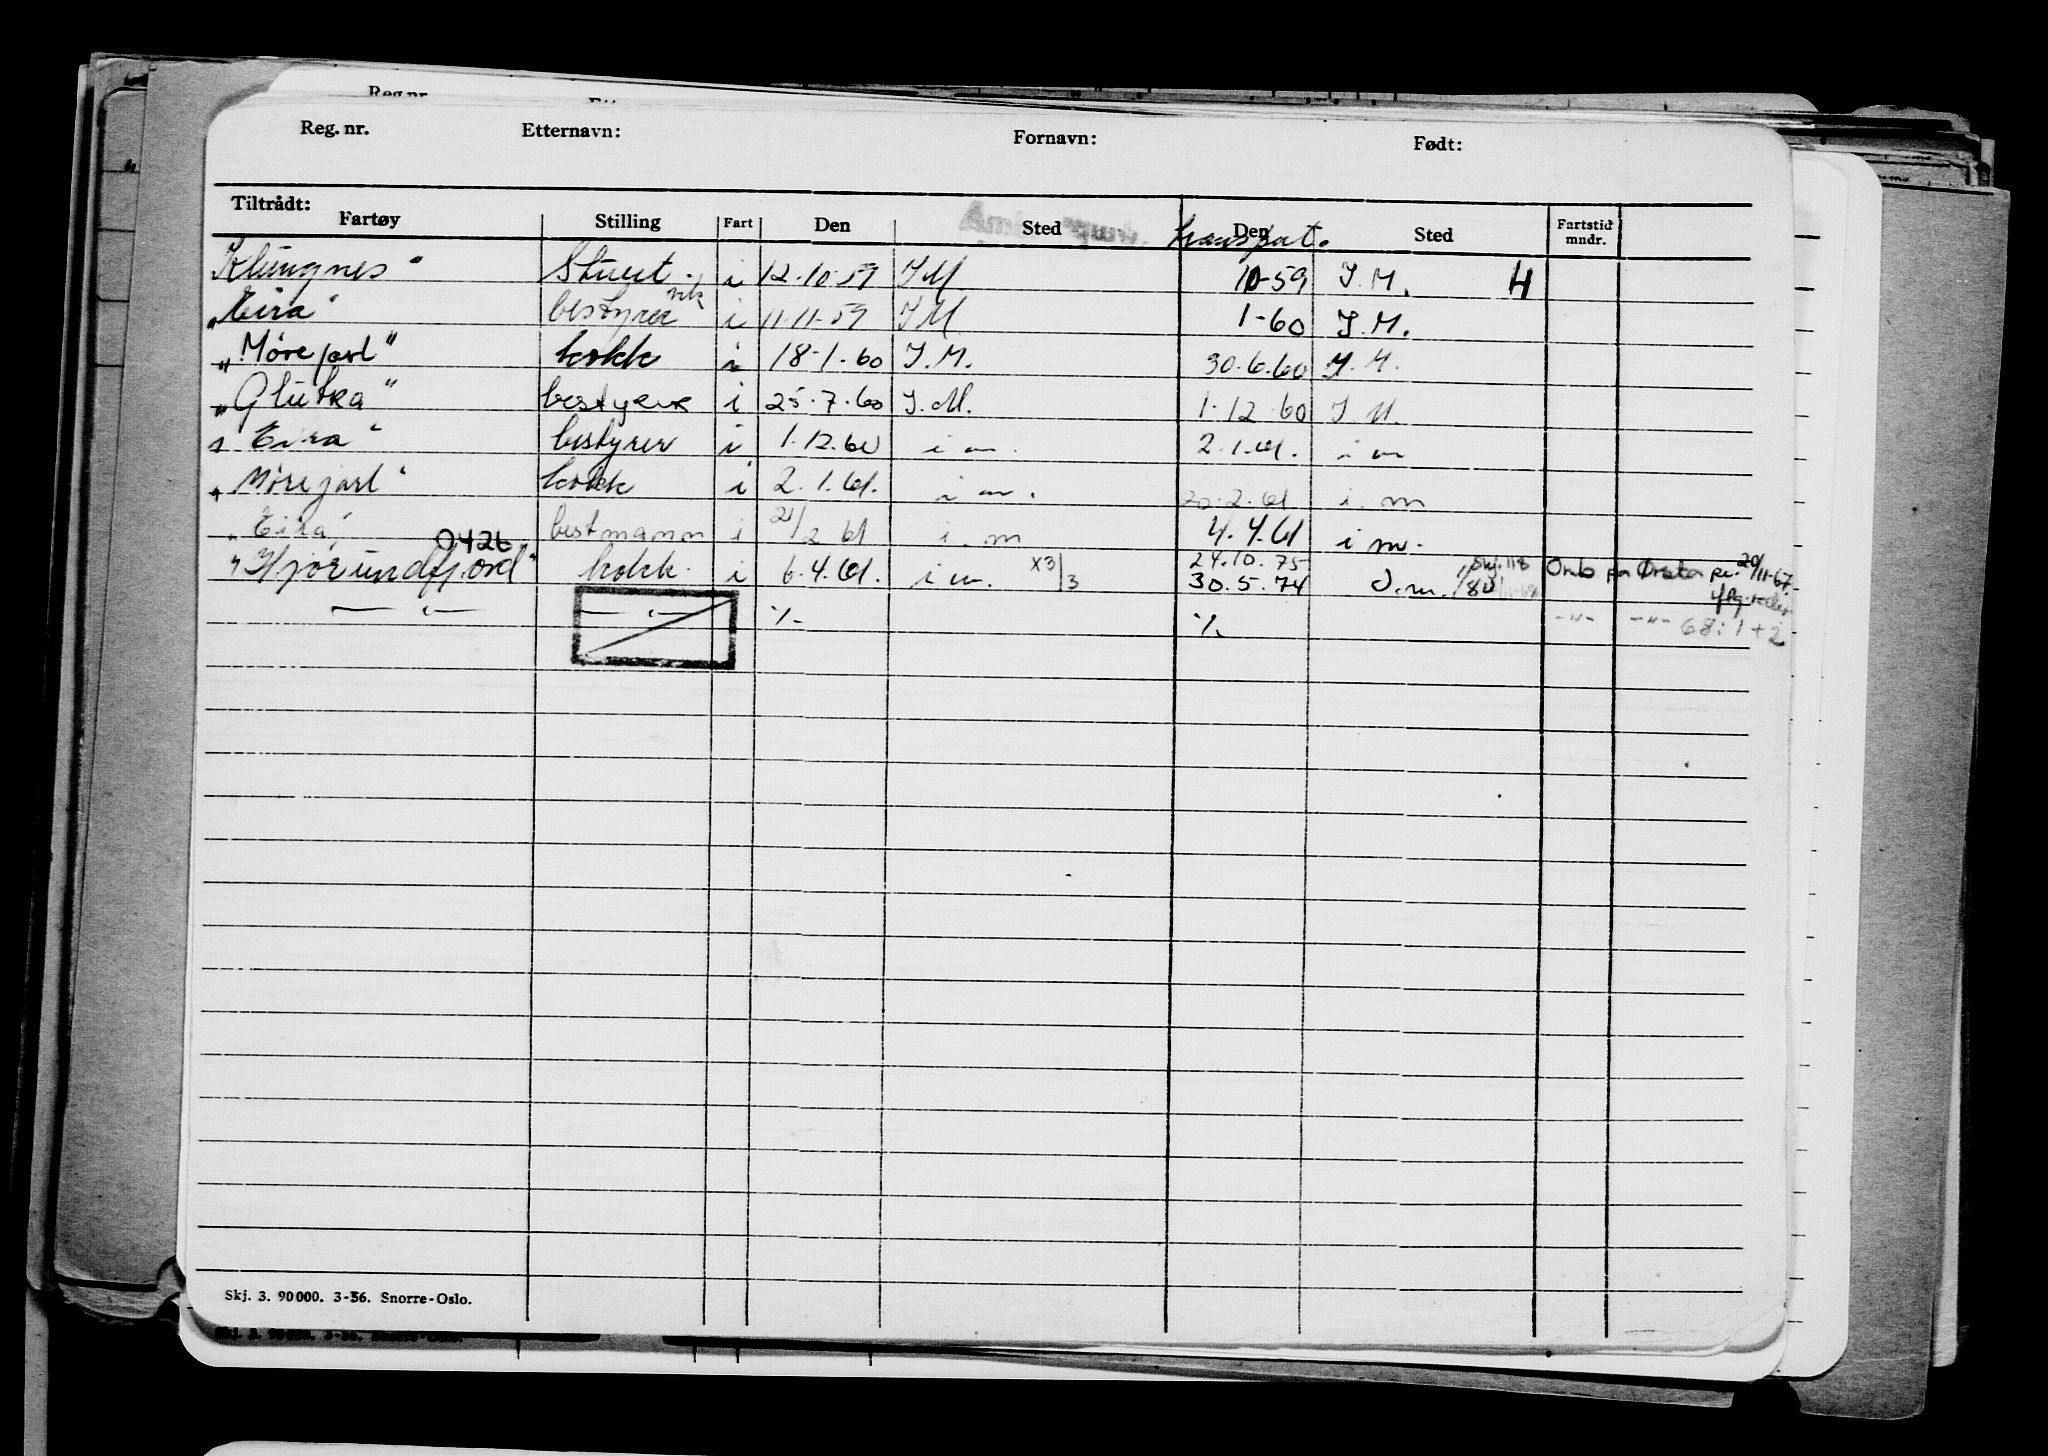 Reg.nr.
Reg. nr. Etternavn: Fornavn: Født:
Tiltrådt:
Fartøy Stilling Fart Den Sted Den Sted Fartstid mndr.
transport.
Klungnes" Stuert. i 12-10-59 I M 10-59 I. M. H
vik
"Eira" bestyrer i 11-11-59 I M 1-60 I. M.
"Mørejarl" kokk i 18-1-60 I. M. 30.6.60 I. M.
"Glutra" bestyrer i 25.7.60 I. M. 1.12.60 I M.
"Eira" bestyrer i 1.12.60 i m. 2.1.61. i m
"Mørejarl" kokk i 2.1.61. i m. 20.2.61 i. m
"Eira" bestmann i 21/2 61 i. m 4.4.61 i m.
0426
"Hjørundfjord" kokk. i 6.4.61. i m. x3/3 24.10.75
30.5.74 Skj. 118 Omb på Ørsta pr. 20/11-67.
— " — — " — ٪ ٪ -"- -"- 68: 1+2
Skj. 3. 90000. 3-56. Snorre-Oslo.